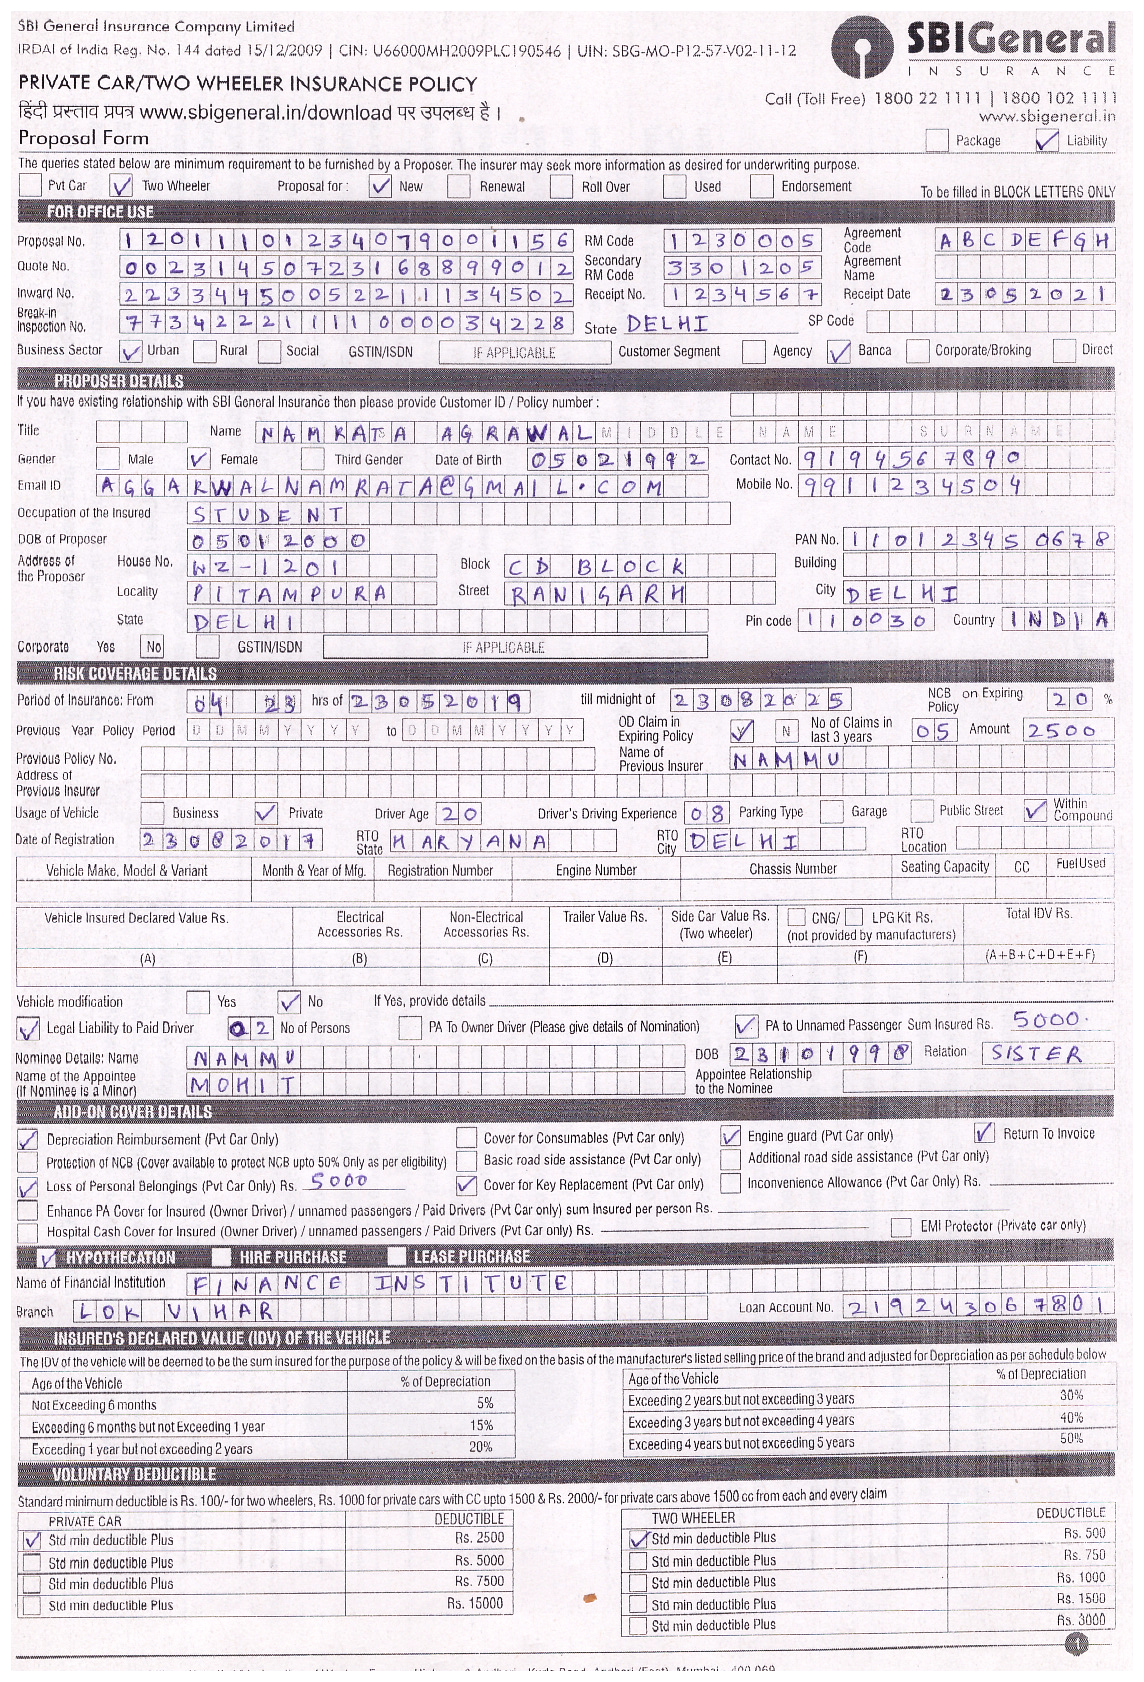 SBI General Insurance Company Limited
IRDAI of India Reg. No. 144 dated 15/12/2009 | CIN: U66000MH2009PLC190546 | UIN: SBG-MO-P12-57-V02-11-12
SBIGeneral
INSURANCE
PRIVATE CAR/TWO WHEELER INSURANCE POLICY
Call (Toll Free) 1800 22 1111 | 1800 102 1111
हिंदी प्रस्ताव प्रपत्र www.sbigeneral.in/download पर उपलब्ध है ।
www.sbigeneral.in
Proposal Form
Package Liability
The queries stated below are minimum requirement to be furnished by a Proposer. The insurer may seek more information as desired for underwriting purpose.
Pvt Car Two Wheeler Proposal for : New Renewal Roll Over Used Endorsement To be filled in BLOCK LETTERS ONLY
FOR OFFICE USE
Proposal No. 12011101234079001156 RM Code 1230005 Agreement Code ABCDEFGH
Quote No. 00231450723168899012 Secondary RM Code 3301205 Agreement Name
Inward No. 223344500522111134502 Receipt No. 1234567 Receipt Date 23052021
Break-in Inspection No. 77342221111000034228 State DELHI SP Code
Business Sector Urban Rural Social GSTIN/ISDN IF APPLICABLE Customer Segment Agency Banca Corporate/Broking Direct
PROPOSER DETAILS
If you have existing relationship with SBI General Insurance then please provide Customer ID / Policy number :
Title Name NAMRATA AGRAWAL MIDDLE NAME SURNAME
Gender Male Female Third Gender Date of Birth 05021992 Contact No. 9194567890
Email ID AGGARWALNAMRATA@GMAIL.COM Mobile No. 9911234504
Occupation of the Insured STUDENT
DOB of Proposer 05012000 PAN No. 110123450678
Address of the Proposer House No. WZ-1201 Block CD BLOCK Building
Locality PITAMPURA Street RANIGARH City DELHI
State DELHI Pin code 110030 Country INDIA
Corporate Yes No GSTIN/ISDN IF APPLICABLE
RISK COVERAGE DETAILS
Period of Insurance: From 04 23 hrs of 23052019 till midnight of 23082025 NCB on Expiring Policy 20 %
Previous Year Policy Period DDMMYYYY to DDMMYYYY OD Claim in Expiring Policy Y N No of Claims in last 3 years 05 Amount 2500
Previous Policy No. Name of Previous Insurer NAMMU
Address of Previous Insurer
Usage of Vehicle Business Private Driver Age 20 Driver's Driving Experience 08 Parking Type Garage Public Street Within Compound
Date of Registration 23082017 RTO State HARYANA RTO City DELHI RTO Location
Vehicle Make, Model & Variant Month & Year of Mfg. Registration Number Engine Number Chassis Number Seating Capacity CC Fuel Used
Vehicle Insured Declared Value Rs. Electrical Accessories Rs. Non-Electrical Accessories Rs. Trailer Value Rs. Side Car Value Rs. (Two wheeler) CNG/ LPG Kit Rs. (not provided by manufacturers) Total IDV Rs.
(A) (B) (C) (D) (E) (F) (A+B+C+D+E+F)
Vehicle modification Yes No If Yes, provide details
Legal Liability to Paid Driver 02 No of Persons PA To Owner Driver (Please give details of Nomination) PA to Unnamed Passenger Sum Insured Rs. 5000
Nominee Details: Name NAMMU DOB 23101998 Relation SISTER
Name of the Appointee (If Nominee is a Minor) MOHIT Appointee Relationship to the Nominee
ADD-ON COVER DETAILS
Depreciation Reimbursement (Pvt Car Only) Cover for Consumables (Pvt Car only) Engine guard (Pvt Car only) Return To Invoice
Protection of NCB (Cover available to protect NCB upto 50% Only as per eligibility) Basic road side assistance (Pvt Car only) Additional road side assistance (Pvt Car only)
Loss of Personal Belongings (Pvt Car Only) Rs. 5000 Cover for Key Replacement (Pvt Car only) Inconvenience Allowance (Pvt Car only) Rs.
Enhance PA Cover for Insured (Owner Driver) / unnamed passengers / Paid Drivers (Pvt Car only) sum Insured per person Rs.
Hospital Cash Cover for Insured (Owner Driver) / unnamed passengers / Paid Drivers (Pvt Car only) Rs. EMI Protector (Private car only)
HYPOTHECATION HIRE PURCHASE LEASE PURCHASE
Name of Financial Institution FINANCE INSTITUTE
Branch LOK VIHAR Loan Account No. 219243067801
INSURED'S DECLARED VALUE (IDV) OF THE VEHICLE
The IDV of the vehicle will be deemed to be the sum insured for the purpose of the policy & will be fixed on the basis of the manufacturer's listed selling price of the brand and adjusted for Depreciation as per schedule below
Age of the Vehicle % of Depreciation Age of the Vehicle % of Depreciation
Not Exceeding 6 months 5% Exceeding 2 years but not exceeding 3 years 30%
Exceeding 6 months but not Exceeding 1 year 15% Exceeding 3 years but not exceeding 4 years 40%
Exceeding 1 year but not exceeding 2 years 20% Exceeding 4 years but not exceeding 5 years 50%
VOLUNTARY DEDUCTIBLE
Standard minimum deductible is Rs. 100/- for two wheelers, Rs. 1000 for private cars with CC upto 1500 & Rs. 2000/- for private cars above 1500 cc from each and every claim
PRIVATE CAR DEDUCTIBLE TWO WHEELER DEDUCTIBLE
Std min deductible Plus Rs. 2500 Std min deductible Plus Rs. 500
Std min deductible Plus Rs. 5000 Std min deductible Plus Rs. 750
Std min deductible Plus Rs. 7500 Std min deductible Plus Rs. 1000
Std min deductible Plus Rs. 15000 Std min deductible Plus Rs. 1500
Std min deductible Plus Rs. 3000
1